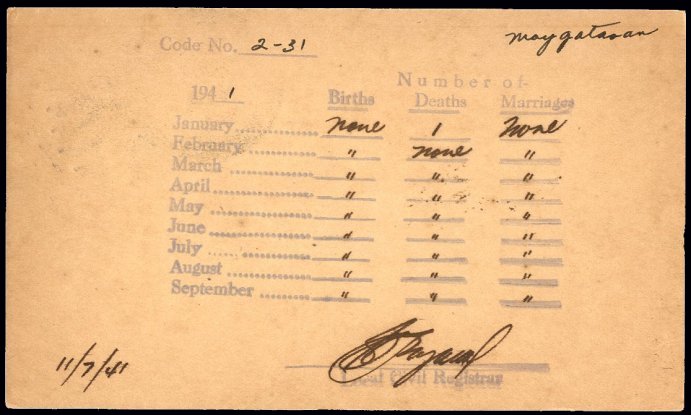 Code No. 2-31
Maygatasan
Number of
194 1 Births Deaths Marriages
January none 1 none
February " none "
March " " "
April " " "
May " " "
June " " "
July " " "
August " " "
September " " "
11/7/41
Local Civil Registrar